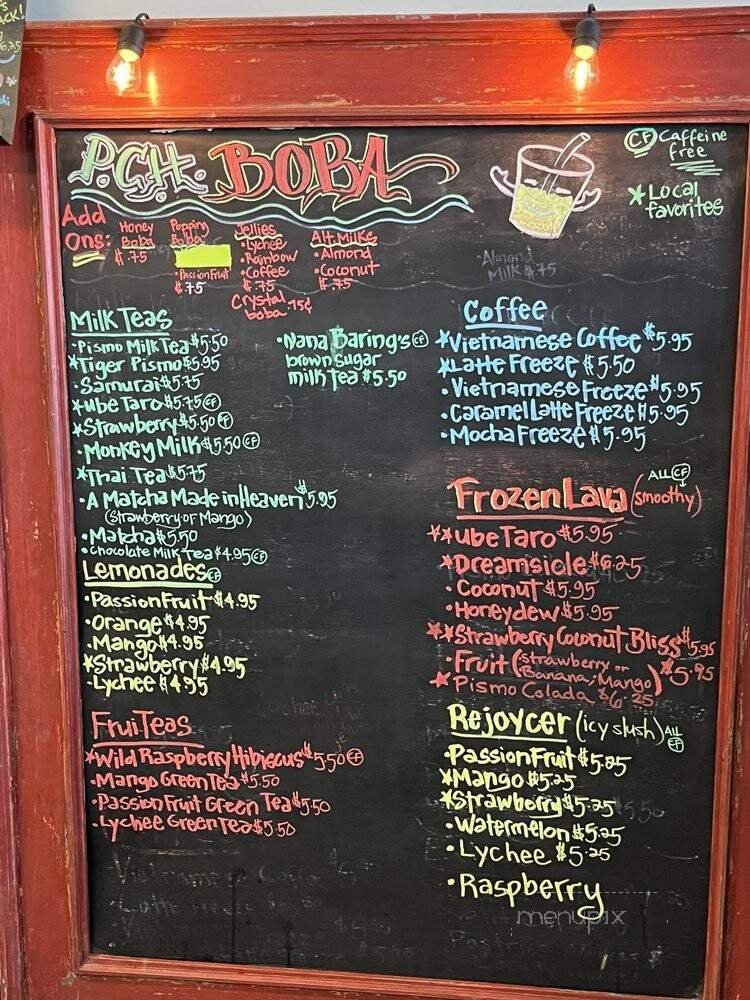 P.C.H. BOBA
CF Caffeine
free
★ Local
favorites
Add
Ons:
Honey
Boba
$.75
Popping
Boba
•PassionFruit
$.75
Jellies
•Lychee
•Rainbow
•Coffee
$.75
Crystal
boba .75¢
Alt Milks
•Almond
•Coconut
$.75
•Almond
Milk $.75
Milk Teas
•Pismo Milk Tea $5.50
★Tiger Pismo $5.95
•Samurai $5.75
★Ube Taro $5.75 CF
★Strawberry $5.50 CF
•Monkey Milk $5.50 CF
★Thai Tea $5.75
•A Matcha Made in Heaven $5.95
(Strawberry or Mango)
•Matcha $5.50
•Chocolate Milk Tea $4.95 CF
•Nana Baring's CF
brown sugar
milk tea $5.50
Lemonades CF
•PassionFruit $4.95
•Orange $4.95
•Mango $4.95
★Strawberry $4.95
•Lychee $4.95
FruiTeas
★Wild Raspberry Hibiscus $5.50 CF
•Mango Green Tea $5.50
•Passion Fruit Green Tea $5.50
•Lychee Green Tea $5.50
Coffee
★Vietnamese Coffee $5.95
★Latte Freeze $5.50
•Vietnamese Freeze $5.95
•Caramel Latte Freeze $5.95
•Mocha Freeze $5.95
Frozen Lava (smoothy)
ALL CF
★★Ube Taro $5.95
★Dreamsicle $6.25
•Coconut $5.95
•Honeydew $5.95
★★Strawberry Coconut Bliss $5.95
•Fruit (Strawberry or
Banana, Mango) $5.95
★Pismo Colada $6.25
Rejoycer (icy slush) ALL
CF
•PassionFruit $5.85
★Mango $5.25
★Strawberry $5.25
•Watermelon $5.25
•Lychee $5.25
•Raspberry
menupix